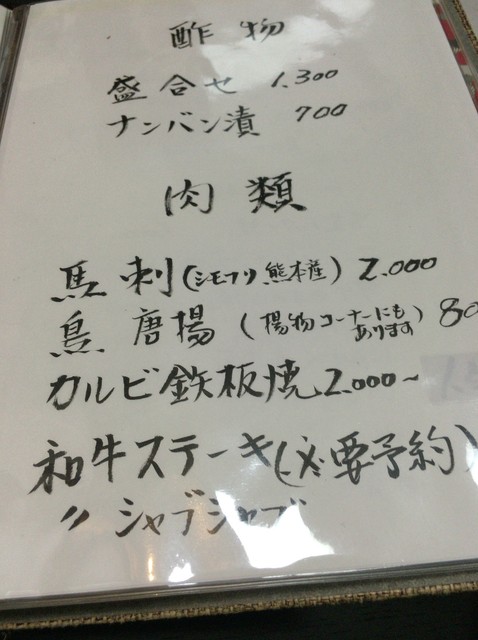 酢物
盛合せ 1.300
ナンバン漬 700
肉類
馬刺(シモフリ熊本産) 2.000
鳥唐揚(揚物コーナーにもあります) 80
カルビ鉄板焼 2.000~
和牛ステーキ(必要予約)
〃 シャブシャブ